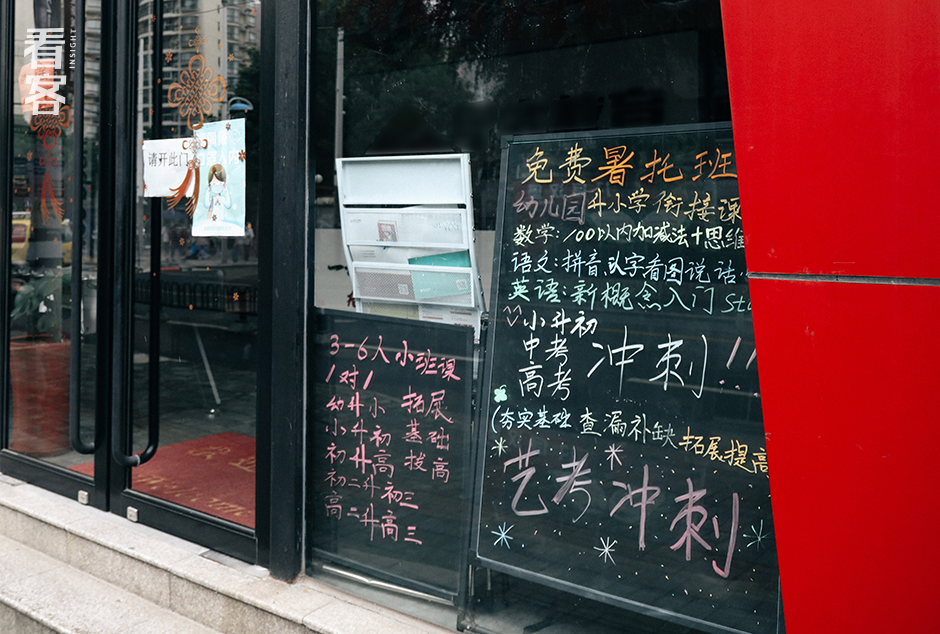 看客
INSIGHT
请开此门
免费暑托班
幼儿园升小学衔接课
数学:100以内加减法+思维
语文:拼音、认字看图说话
英语:新概念入门 Sta
小升初
中考
高考
冲刺!!!
(夯实基础 查漏补缺 拓展提高
艺考冲刺
3-6人小班课
1对1
幼升小
小升初
初升高
初二升初三
高二升高三
拓展
基础
拔高